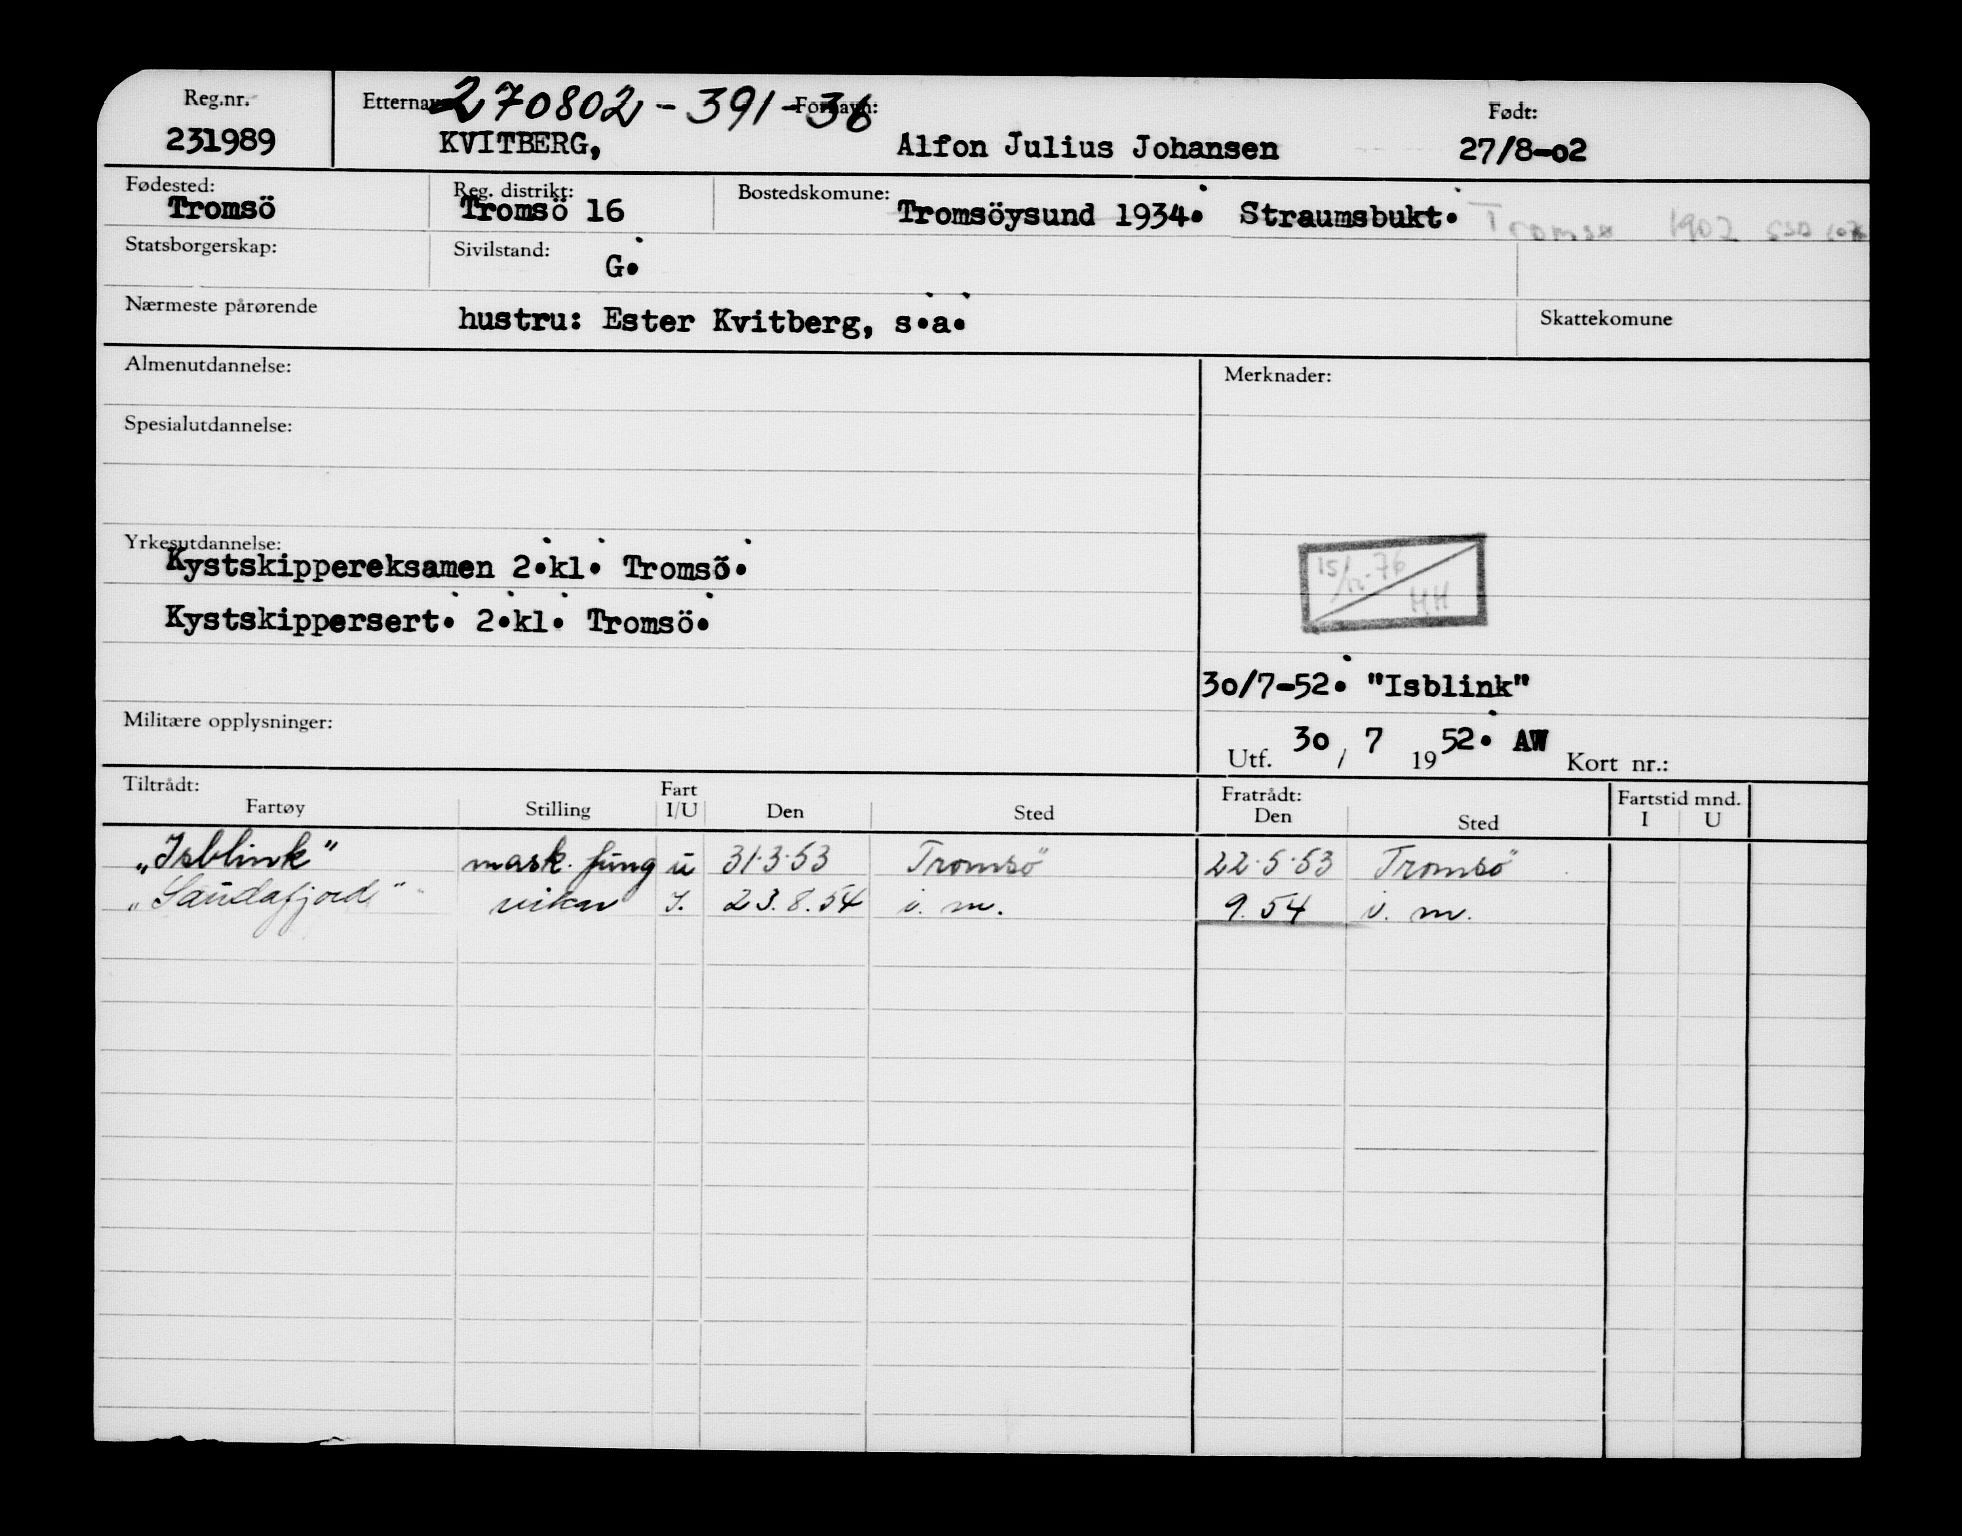 Reg.nr. Etternavn: 270802-391-36 Fornavn: Født:
231989 KVITBERG, Alfon Julius Johansen 27/8-o2
Fødested: Reg. distrikt: Bostedskomune:
Tromsö Tromsö 16 Tromsöysund 1934. Straumsbukt. Tromsø 1902
Statsborgerskap: Sivilstand: G.
Nærmeste pårørende hustru: Ester Kvitberg, s.a. Skattekomune
Almenutdannelse: Merknader:
Spesialutdannelse:
Yrkesutdannelse:
Kystskippereksamen 2.kl. Tromsö.
15/12-76
HH
Kystskippersert. 2.kl. Tromsö.
3o/7-52. "Isblink"
Militære opplysninger: Utf. 3o / 7 1952. AW Kort nr.:
Tiltrådt: Fart Fratrådt: Fartstid mnd.
Fartøy Stilling I/U Den Sted Den Sted I U
„Isblink" mask. fung u 31.3.53 Tromsö 22.5.53 Tromsö
„Sandafjord" vikar I. 23.8.54 i. m. 9.54 i. m.